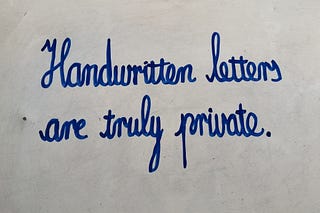 Handwritten letters
are truly private.